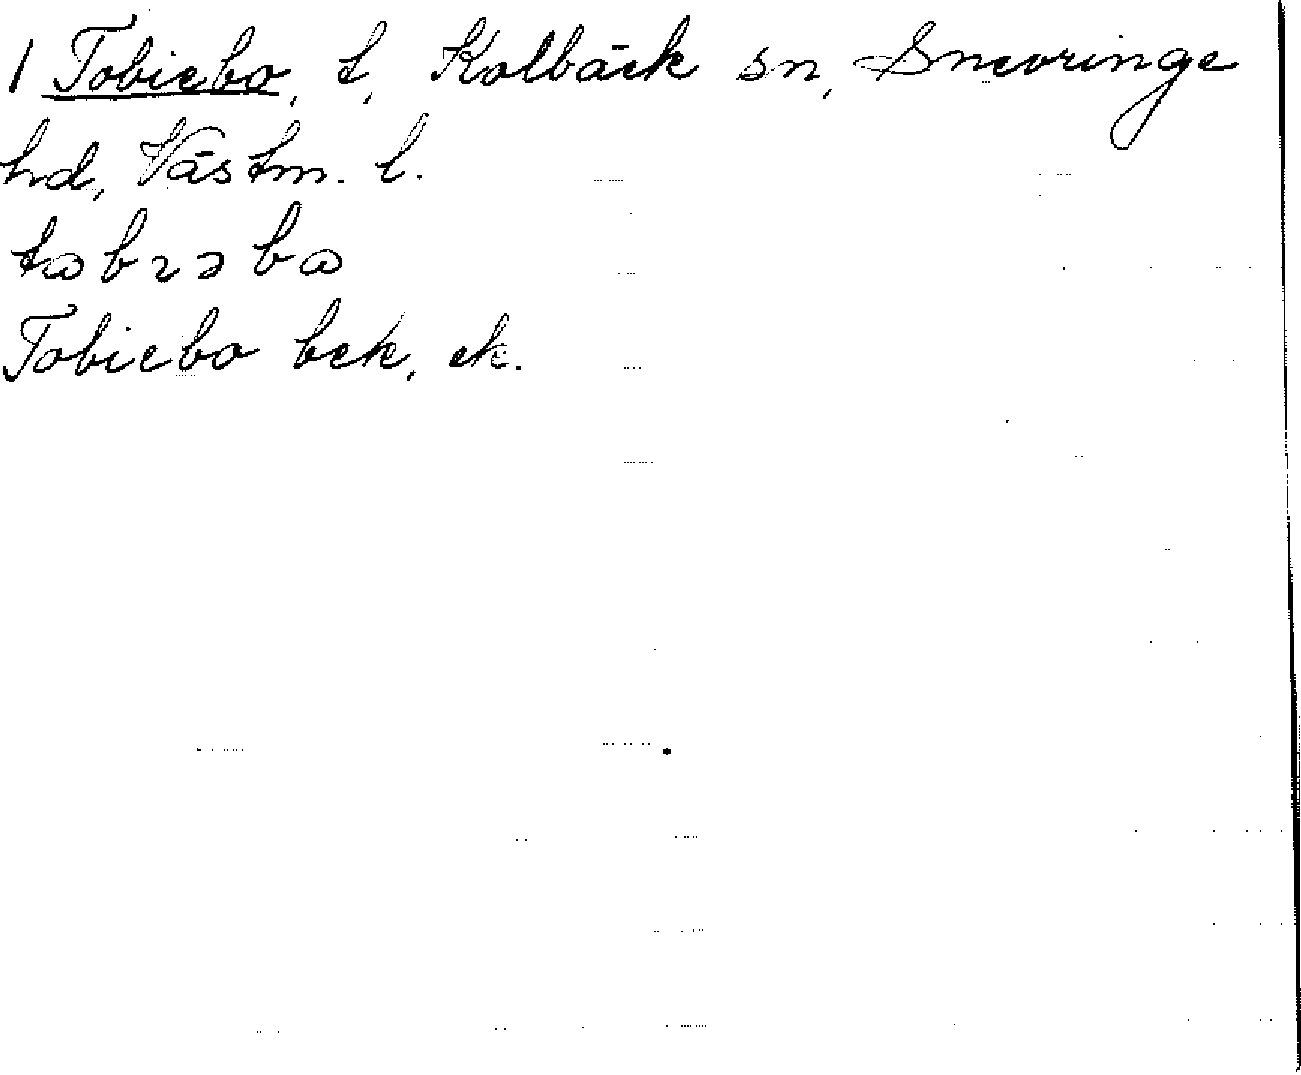 1 Tobiebo, t, Kolbäck sn, Snevringe
hd, Västm. l.
tɷbɿəbɷ
Tobiebo bek, ek.